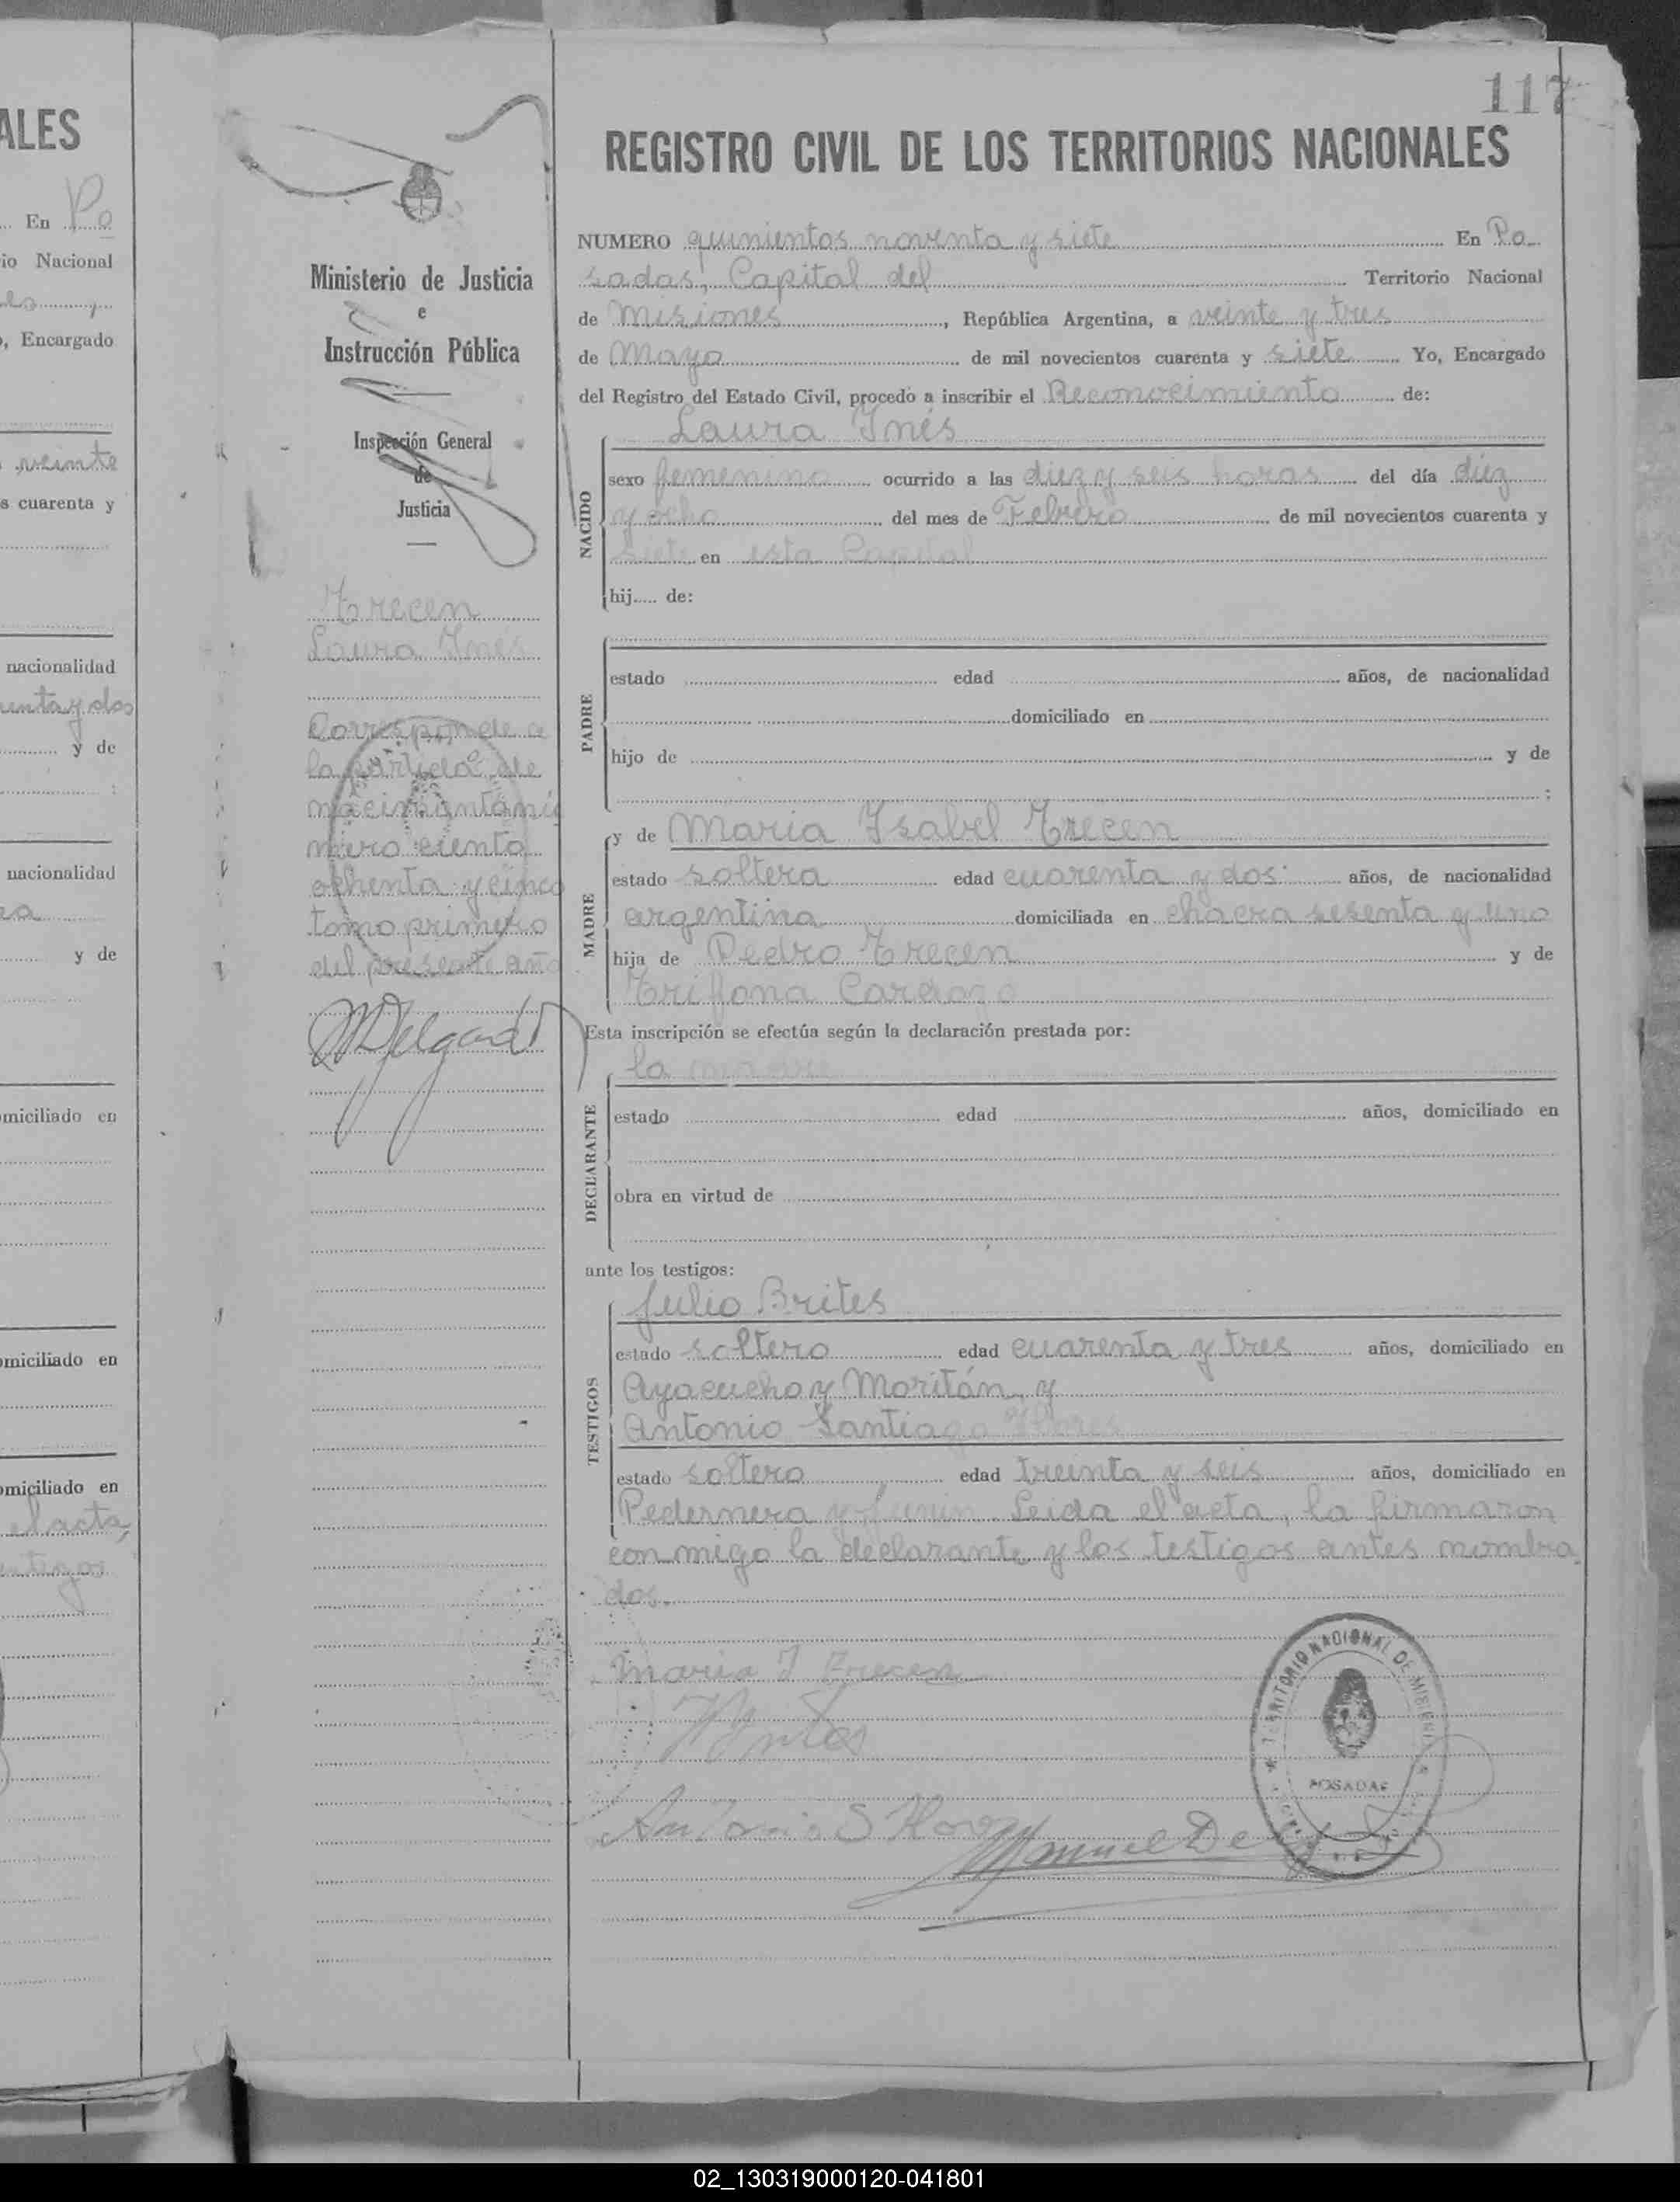 ALES
En Po
io Nacional
, Encargado
veinte
s cuarenta y
nacionalidad
enta y dos
y de
nacionalidad
y de
miciliado en
omiciliado en
omiciliado en
el acta,
Ministerio de Justicia
e
Instrucción Pública
Inspección General
de
Justicia
Trecen
Laura Inés
Corresponde a
la partida de
nacimiento nú
mero ciento
ochenta y cinco
tomo primero
del presente año
MDelgado
117
REGISTRO CIVIL DE LOS TERRITORIOS NACIONALES
NUMERO quinientos noventa y siete En Po
sadas, Capital del Territorio Nacional
de Misiones, República Argentina, a veinte y tres
de Mayo de mil novecientos cuarenta y siete Yo, Encargado
del Registro del Estado Civil, procedo a inscribir el Reconocimiento de:
Laura Inés
NACIDO
sexo femenino ocurrido a las diez y seis horas del día diez
y ocho del mes de Febrero de mil novecientos cuarenta y
siete en esta Capital
hij..... de:
PADRE
estado edad años, de nacionalidad
domiciliado en
hijo de y de
;
MADRE
y de Maria Isabel Trecen
estado soltera edad cuarenta y dos años, de nacionalidad
argentina domiciliada en chacra sesenta y uno
hija de Pedro Trecen y de
Trifona Cardozo
Esta inscripción se efectúa según la declaración prestada por:
la madre
DECLARANTE
estado edad años, domiciliado en
obra en virtud de
ante los testigos:
TESTIGOS
Julio Brites
estado soltero edad cuarenta y tres años, domiciliado en
Ayacucho y Moritán, y
Antonio Santiago Flores
estado soltero edad treinta y seis años, domiciliado en
Pedernera y Junin. Leida el acta, la firmaron
con migo la declarante y los testigos antes nombra
dos.
Maria I Trecen
JBrites
Antonio S Flores
Manuel Delgado
TERRITORIO NACIONAL DE MISIONES
POSADAS
02_130319000120-041801